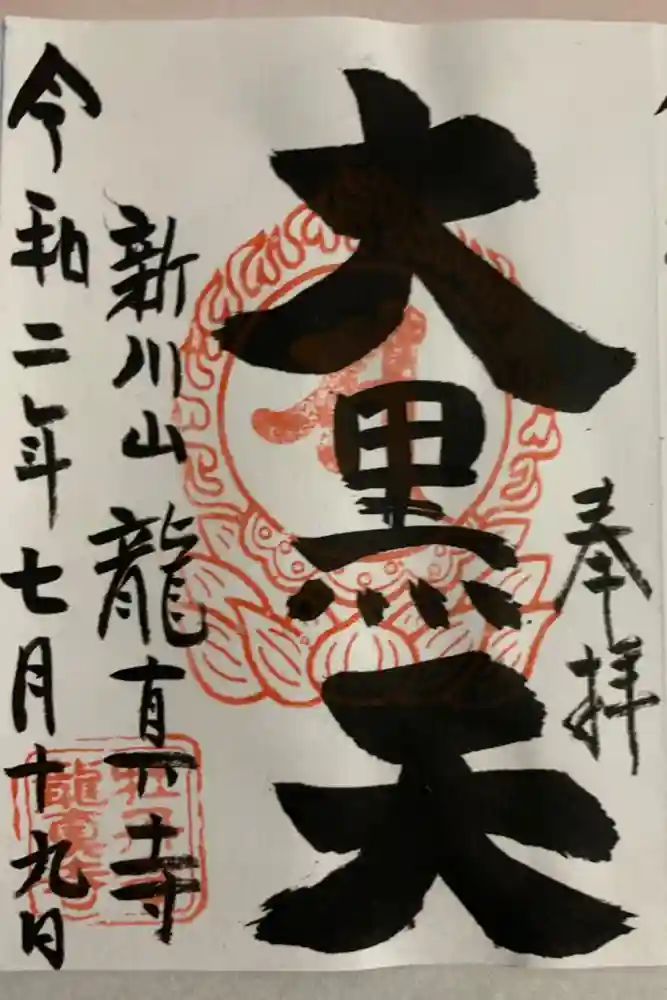 奉拝
大黒天
新川山 龍真寺
令和二年七月十九日